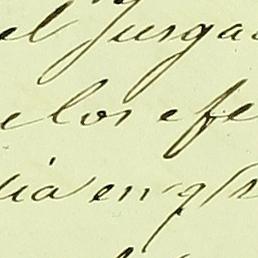 el Jusga
los efe
ia en q